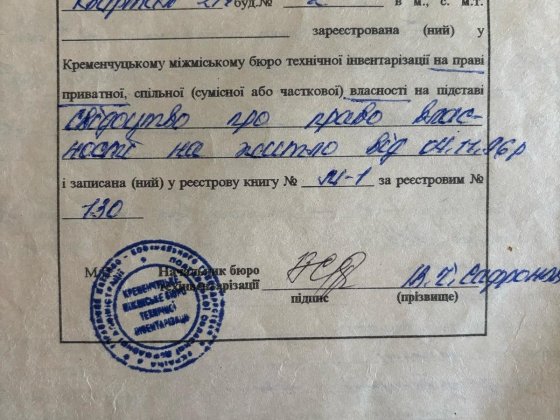 буд.№ 2 в м., с. м.т.
зареєстрована (ний) у
Кременчуцькому міжміському бюро технічної інвентарізації на праві
приватної, спільної (сумісної або часткової) власності на підставі
свідоцтво про право влас-
ності на житло від 04.11.96р
і записана (ний) у реєстрову книгу № за реєстровим №
130
М.П. Начальник бюро
техінвентарізації
підпис (прізвище)
КРЕМЕНЧУЦЬКЕ
МІЖМІСЬКЕ БЮРО
ТЕХНІЧНОЇ
ІНВЕНТАРІЗАЦІЇ